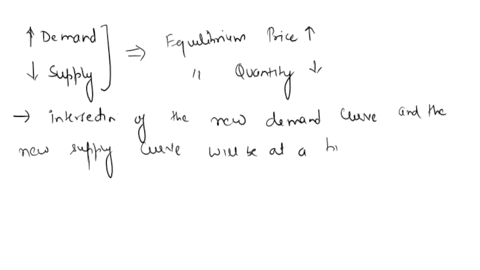 ↑ Demand ⇒ Equilibrium Price ↑
↓ Supply " Quantity ↓
→ intersectn of the new demand curve and the
new supply curve will be at a hi